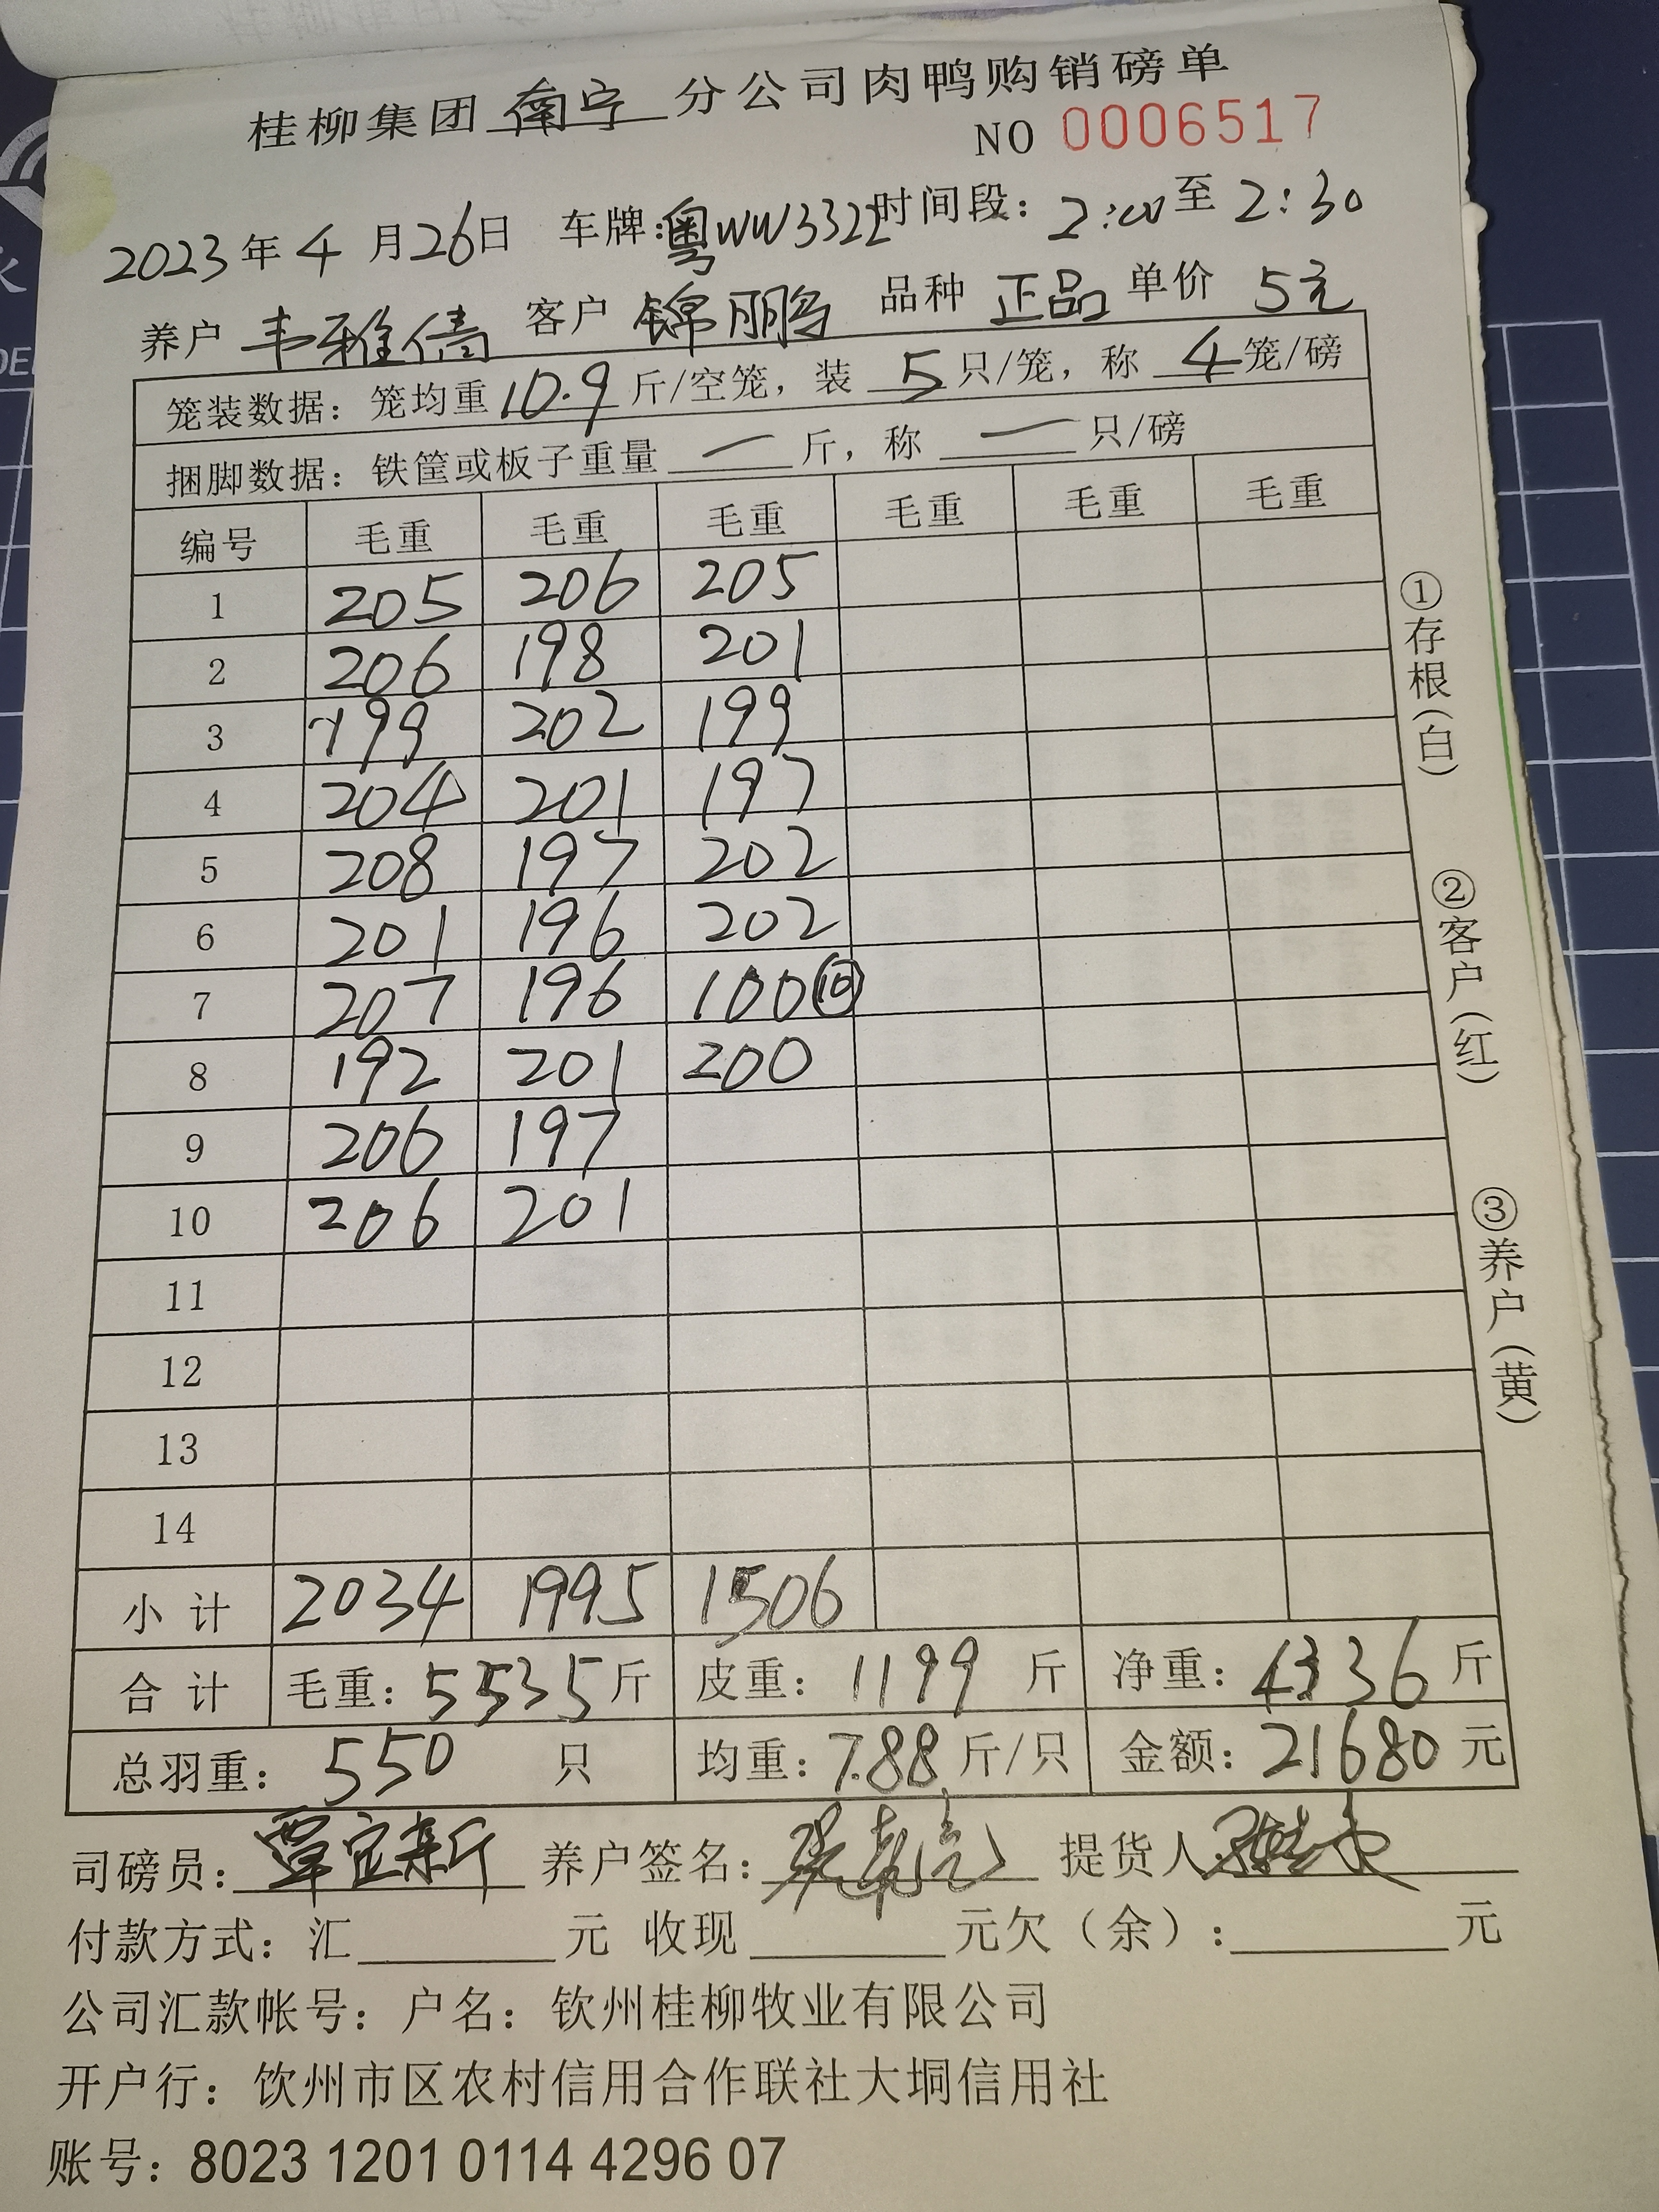 桂柳集团南宁分公司肉鸭购销磅单
NO 0006517
2023年4月26日 车牌:粤WW3322时间段: 2:00至2:30
养户 韦雅倩 客户 锦鹏 品种 正品 单价 5元
笼装数据: 笼均重10.9斤/空笼, 装 5 只/笼, 称 4笼/磅
捆脚数据: 铁筐或板子重量 一 斤, 称 一 只/磅
编号 毛重 毛重 毛重 毛重 毛重 毛重
1 205 206 205
2 206 198 201
3 199 202 199
4 204 201 197
5 208 197 202
6 201 196 202
7 207 196 100⑩
8 192 201 200
9 206 197
10 206 201
11
12
13
14
小计 2034 1995 1506
合计 毛重: 5535斤 皮重: 1199 斤 净重: 4336斤
总羽重: 550 只 均重: 7.88斤/只 金额: 21680元
司磅员: 覃宜新 养户签名: 提货人
付款方式: 汇 元 收现 元欠(余): 元
公司汇款帐号: 户名: 钦州桂柳牧业有限公司
开户行: 饮州市区农村信用合作联社大垌信用社
账号: 8023 1201 0114 4296 07
①存根(白)
②客户(红)
③养户(黄)